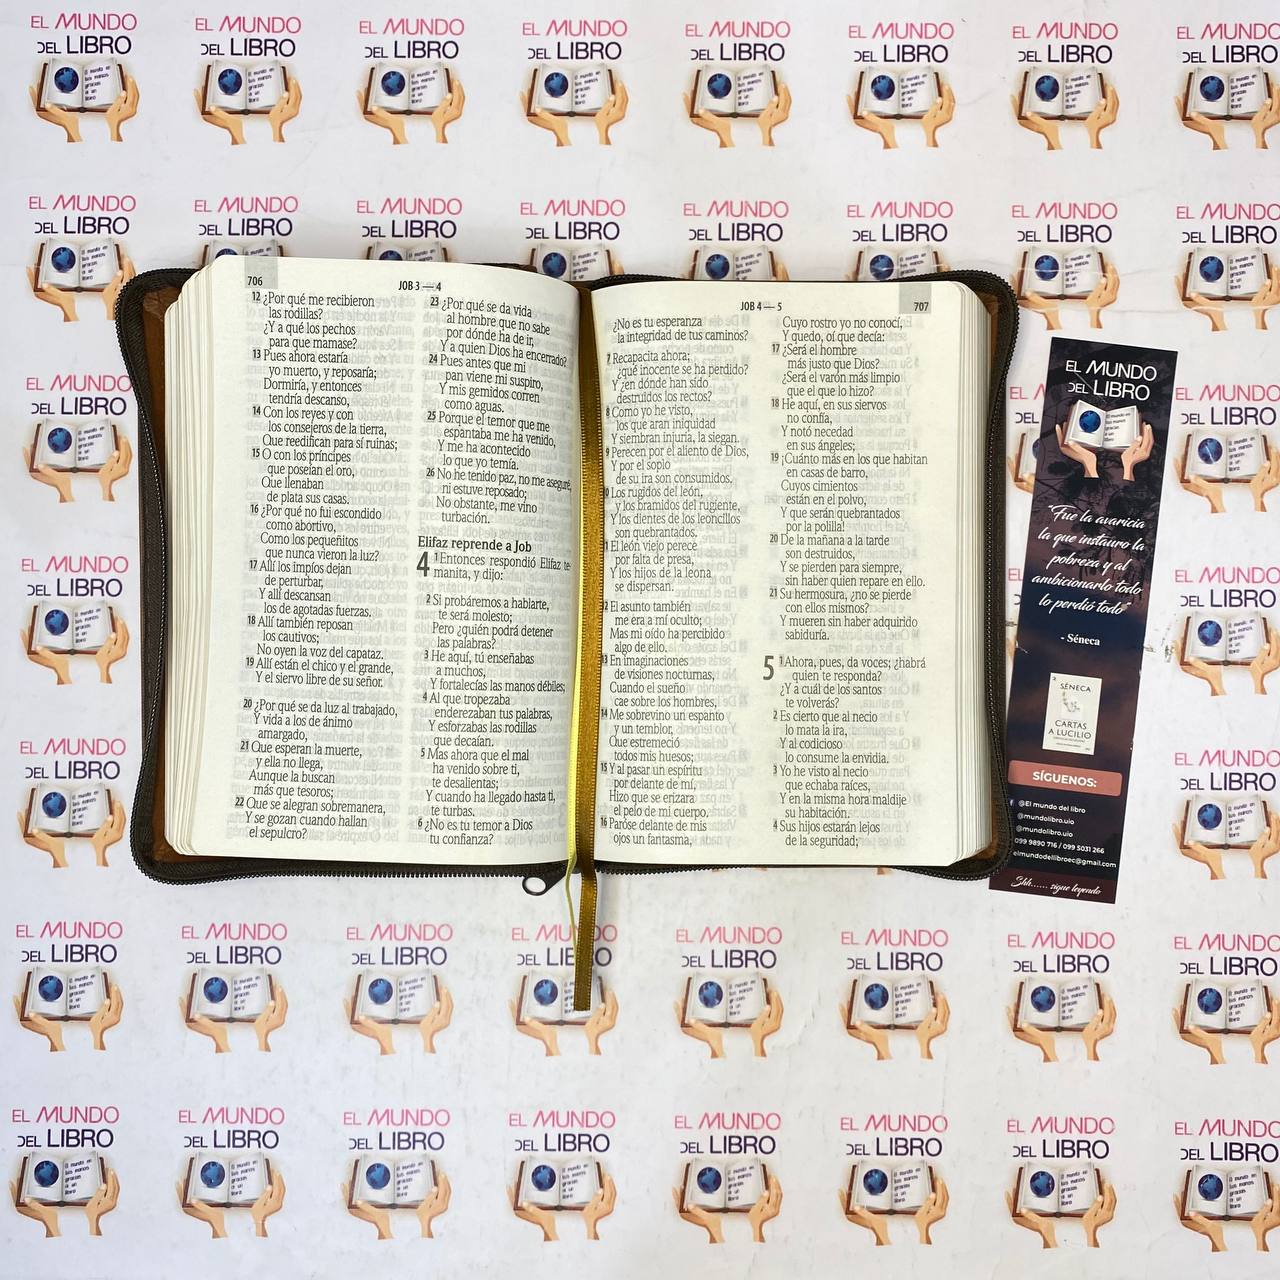 EL MUNDO
DEL LIBRO
El mundo en
tus manos
gracias
a un
libro
706
JOB 3 — 4
12 ¿Por qué me recibieron
las rodillas?
¿Y a qué los pechos
para que mamase?
13 Pues ahora estaría
yo muerto, y reposaría;
Dormiría, y entonces
tendría descanso,
14 Con los reyes y con
los consejeros de la tierra,
Que reedifican para sí ruinas;
15 O con los príncipes
que poseían el oro,
Que llenaban
de plata sus casas.
16 ¿Por qué no fui escondido
como abortivo,
Como los pequeñitos
que nunca vieron la luz?
17 Allí los impíos dejan
de perturbar,
Y allí descansan
los de agotadas fuerzas.
18 Allí también reposan
los cautivos;
No oyen la voz del capataz.
19 Allí están el chico y el grande,
Y el siervo libre de su señor.
20 ¿Por qué se da luz al trabajado,
Y vida a los de ánimo
amargado,
21 Que esperan la muerte,
y ella no llega,
Aunque la buscan
más que tesoros;
22 Que se alegran sobremanera,
Y se gozan cuando hallan
el sepulcro?
23 ¿Por qué se da vida
al hombre que no sabe
por dónde ha de ir,
Y a quien Dios ha encerrado?
24 Pues antes que mi
pan viene mi suspiro,
Y mis gemidos corren
como aguas.
25 Porque el temor que me
espantaba me ha venido,
Y me ha acontecido
lo que yo temía.
26 No he tenido paz, no me aseguré,
ni estuve reposado;
No obstante, me vino
turbación.
Elifaz reprende a Job
4 1 Entonces respondió Elifaz te-
manita, y dijo:
2 Si probáremos a hablarte,
te será molesto;
Pero ¿quién podrá detener
las palabras?
3 He aquí, tú enseñabas
a muchos,
Y fortalecías las manos débiles;
4 Al que tropezaba
enderezaban tus palabras,
Y esforzabas las rodillas
que decaían.
5 Mas ahora que el mal
ha venido sobre ti,
te desalientas;
Y cuando ha llegado hasta ti,
te turbas.
6 ¿No es tu temor a Dios
tu confianza?
JOB 4 — 5
707
¿No es tu esperanza
la integridad de tus caminos?
7 Recapacita ahora;
¿qué inocente se ha perdido?
Y ¿en dónde han sido
destruidos los rectos?
8 Como yo he visto,
los que aran iniquidad
Y siembran injuria, la siegan.
9 Perecen por el aliento de Dios,
Y por el soplo
de su ira son consumidos.
10 Los rugidos del león,
y los bramidos del rugiente,
Y los dientes de los leoncillos
son quebrantados.
11 El león viejo perece
por falta de presa,
Y los hijos de la leona
se dispersan.
12 El asunto también
me era a mí oculto;
Mas mi oído ha percibido
algo de ello.
13 En imaginaciones
de visiones nocturnas,
Cuando el sueño
cae sobre los hombres,
14 Me sobrevino un espanto
y un temblor,
Que estremeció
todos mis huesos;
15 Y al pasar un espíritu
por delante de mí,
Hizo que se erizara
el pelo de mi cuerpo.
16 Paróse delante de mis
ojos un fantasma,
Cuyo rostro yo no conocí,
Y quedo, oí que decía:
17 ¿Será el hombre
más justo que Dios?
¿Será el varón más limpio
que el que lo hizo?
18 He aquí, en sus siervos
no confía,
Y notó necedad
en sus ángeles;
19 ¡Cuánto más en los que habitan
en casas de barro,
Cuyos cimientos
están en el polvo,
Y que serán quebrantados
por la polilla!
20 De la mañana a la tarde
son destruidos,
Y se pierden para siempre,
sin haber quien repare en ello.
21 Su hermosura, ¿no se pierde
con ellos mismos?
Y mueren sin haber adquirido
sabiduría.
5 1 Ahora, pues, da voces; ¿habrá
quien te responda?
¿Y a cuál de los santos
te volverás?
2 Es cierto que al necio
lo mata la ira,
Y al codicioso
lo consume la envidia.
3 Yo he visto al necio
que echaba raíces,
Y en la misma hora maldije
su habitación.
4 Sus hijos estarán lejos
de la seguridad;
EL MUNDO
DEL LIBRO
"Fue la avaricia
la que instauro la
pobreza y al
ambicionarlo todo
lo perdió todo"
- Séneca
SÉNECA
CARTAS
A LUCILIO
SÍGUENOS:
@El mundo del libro
@mundolibro.uio
@mundolibro.uio
099 9890 716 / 099 5031 266
elmundodellibroec@gmail.com
Shh...... sigue leyendo